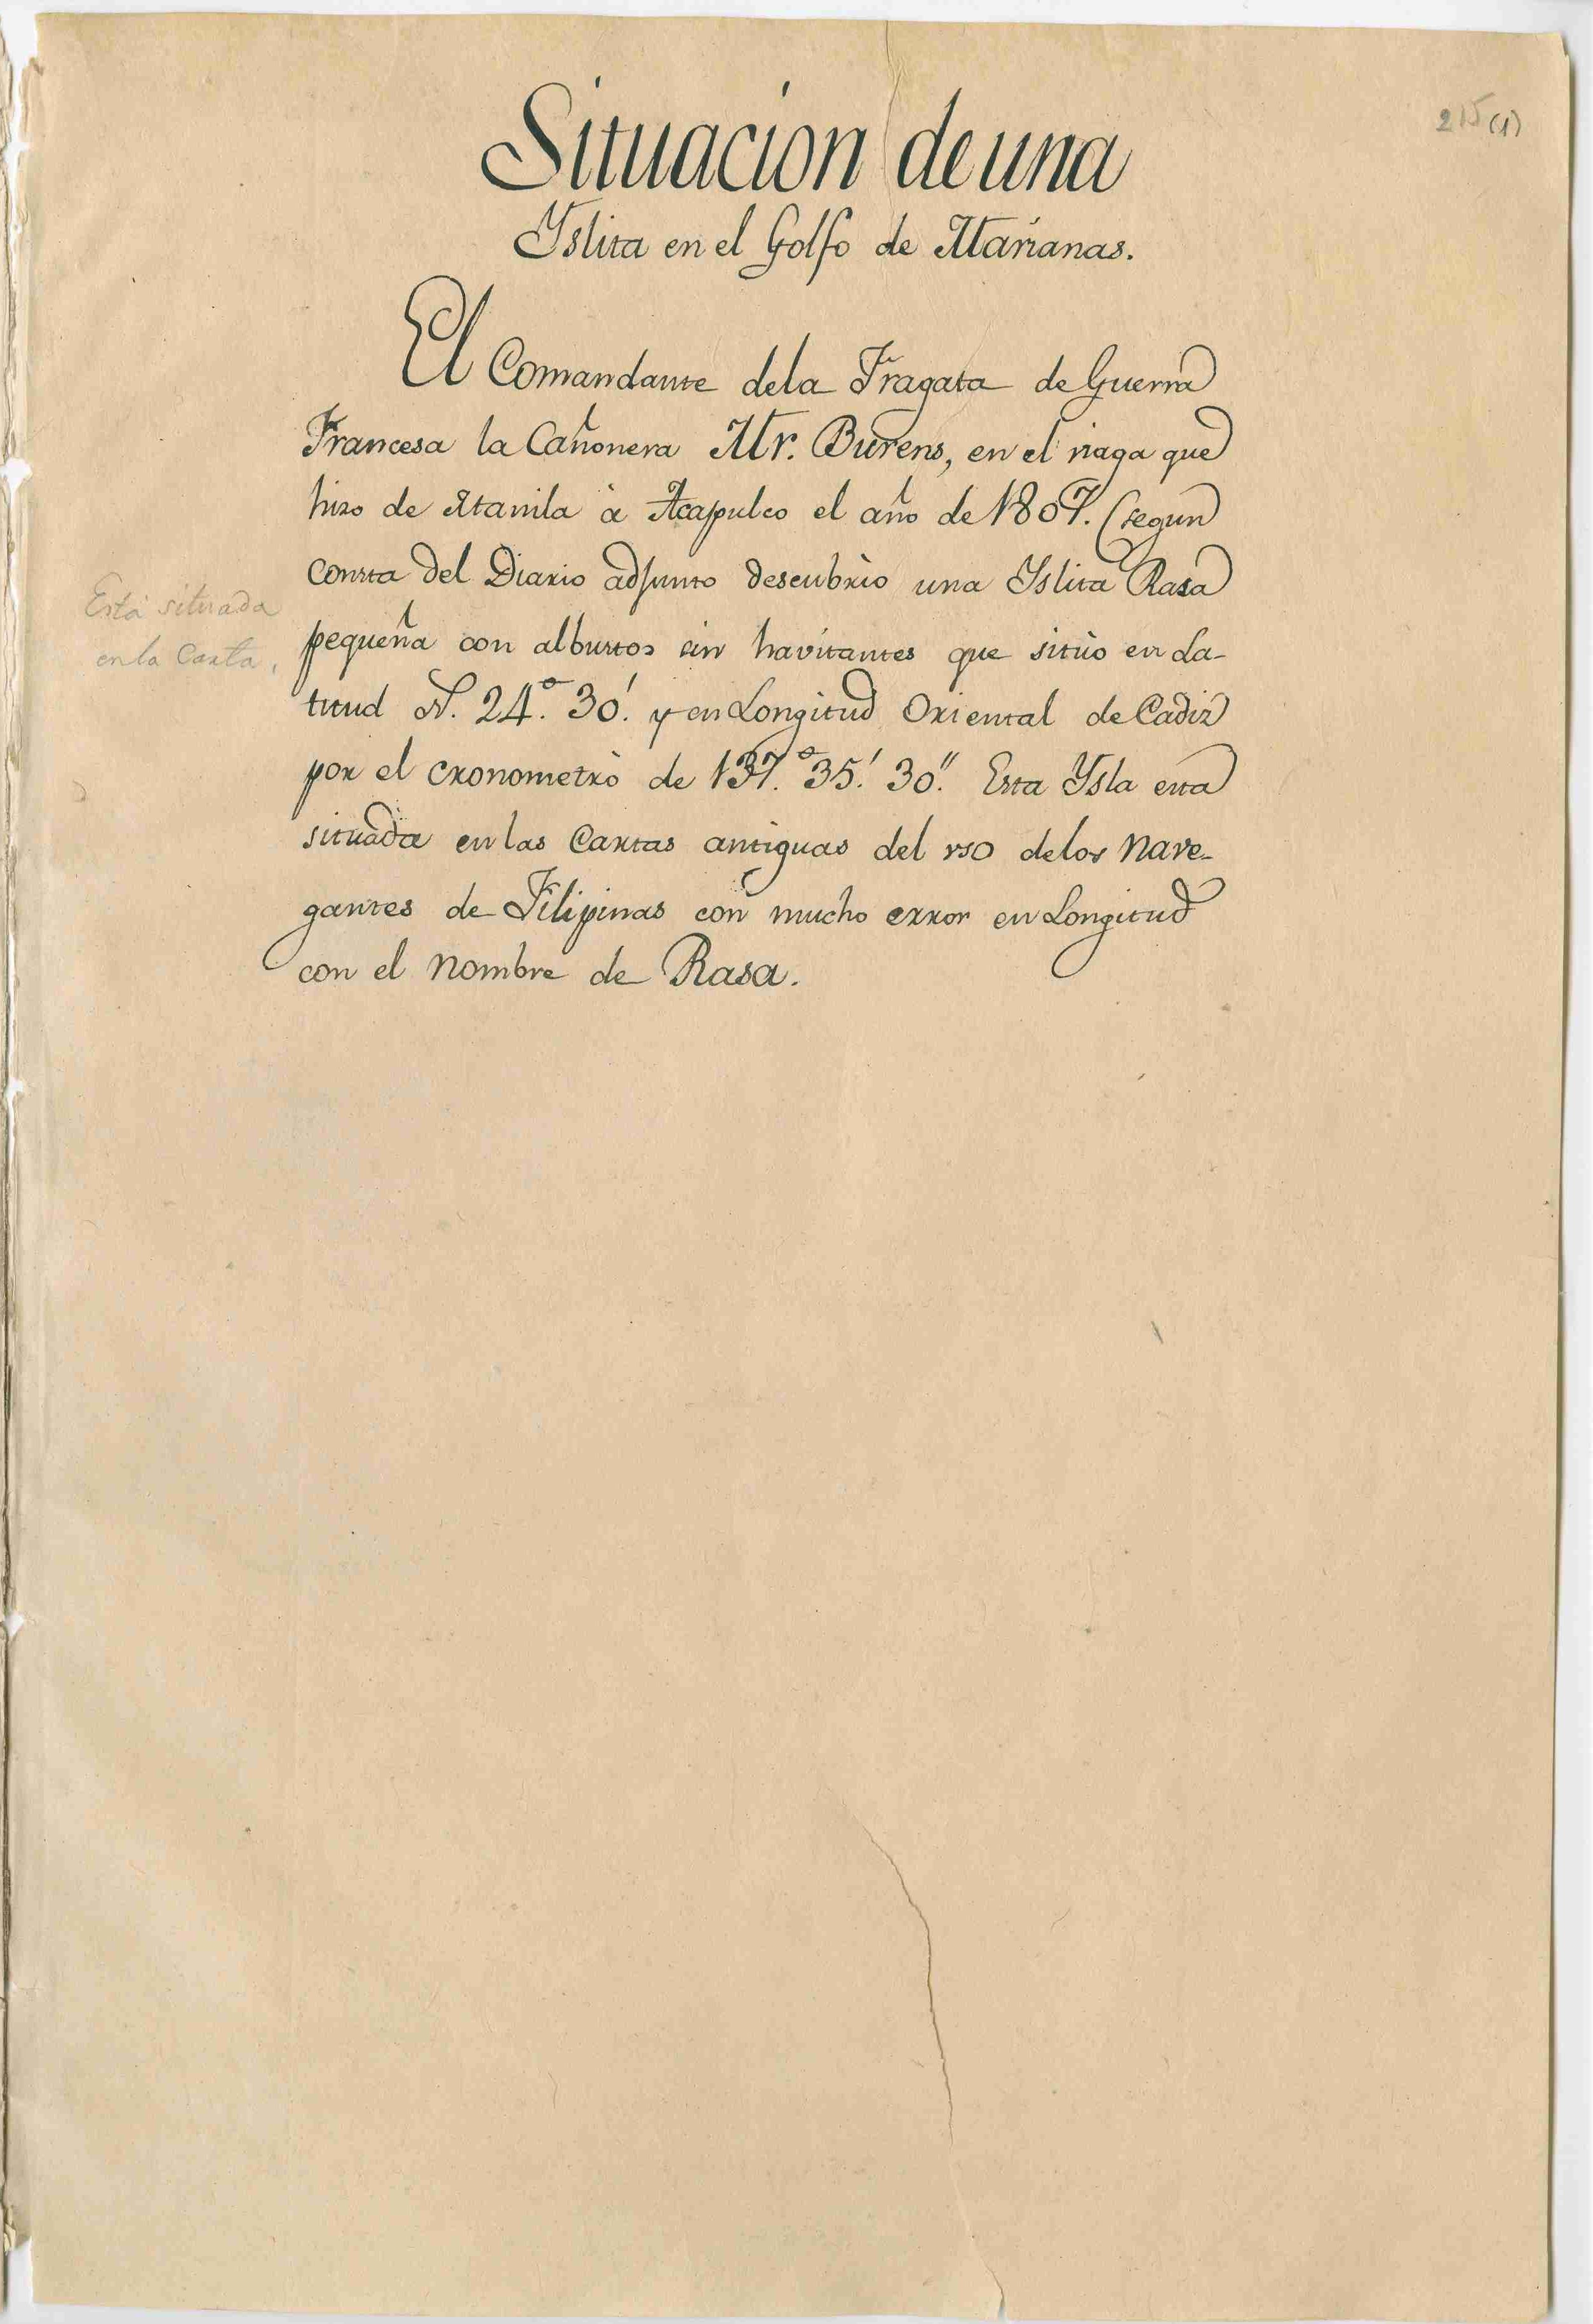 215(1)
Situacion de una
Yslita en el Golfo de Marianas.
El Comandante dela Fragata de Guerra
Francesa la Cañonera Mr. Burens, en el viage que
hizo de Manila à Acapulco el año de 1807. (segun
consta del Diario adjunto descubrio una Yslita Rasa
pequeña con albustos sin havitantes que situo en La-
titud N. 24.° 30.' y en Longitud Oriental de Cadiz
por el cronometro de 137.° 35.' 30." Esta Ysla esta
situada en las Cartas antiguas del vso delos Nave-
gantes de Filipinas con mucho error en Longitud
con el nombre de Rasa.
Está situada
en la Carta.